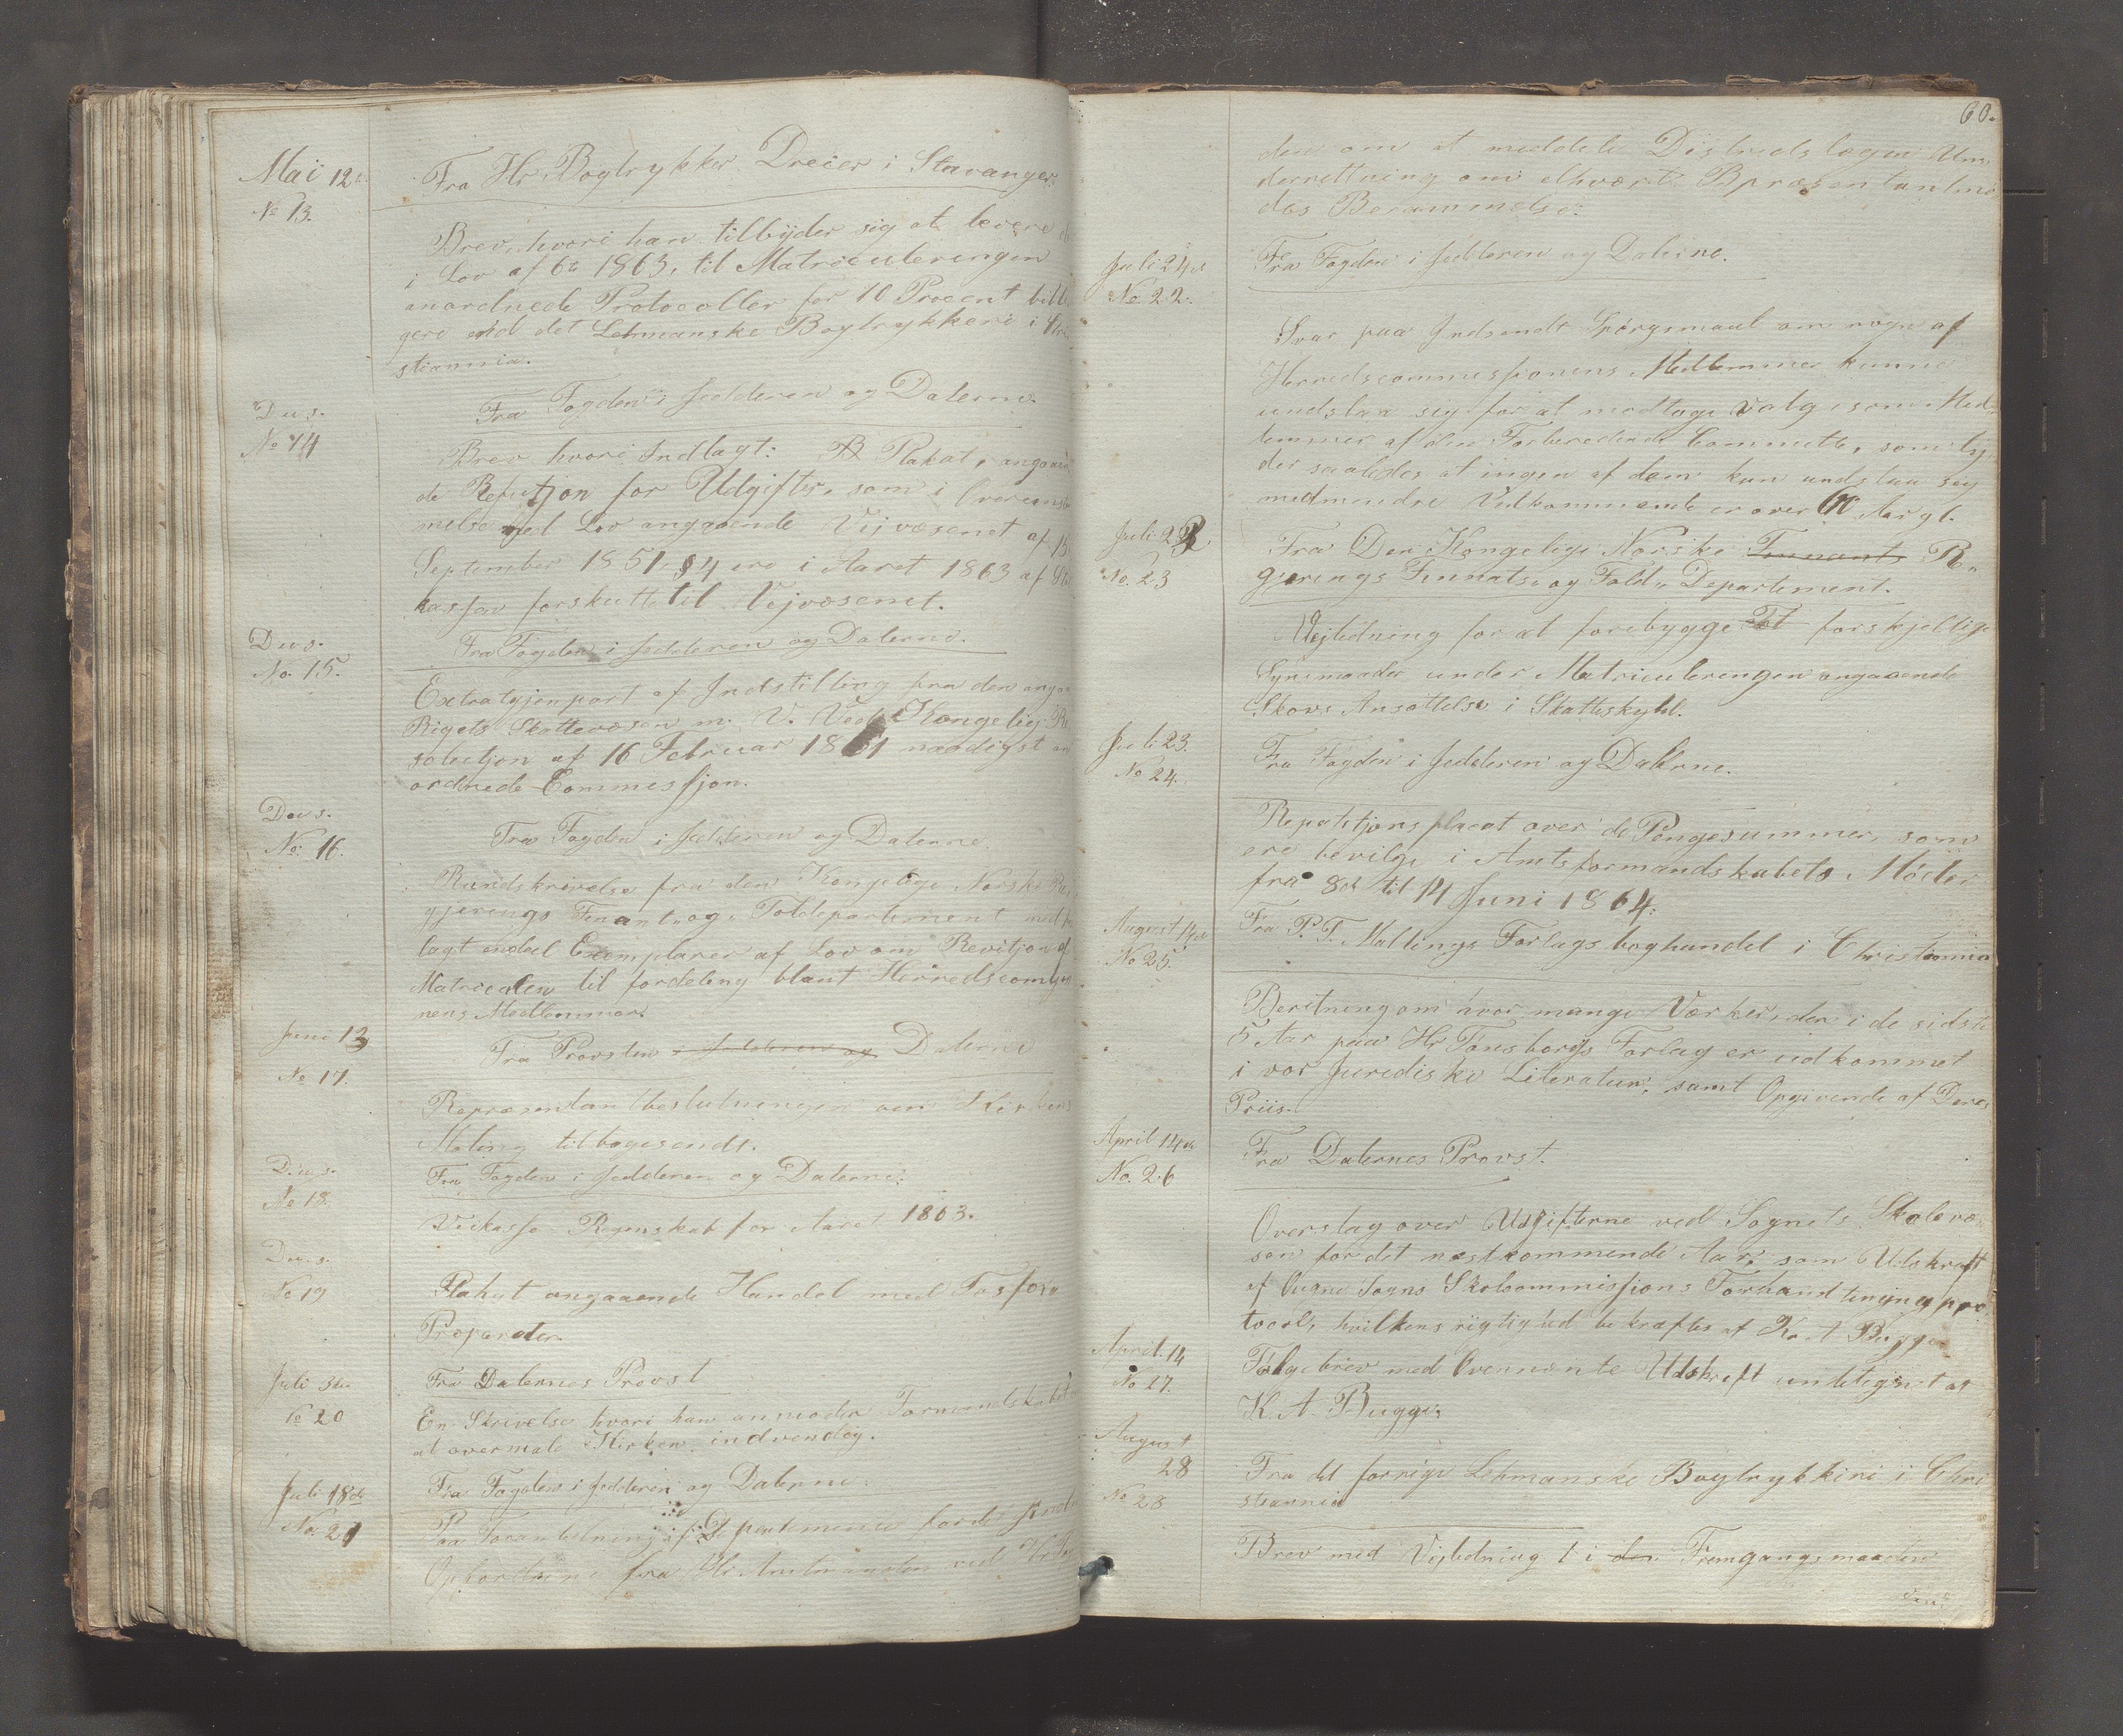 Mai 12te
No 13.
Fra Hr. Bogtrykker Dreier i Stavanger.
Brev, hvori han tilbyder sig at levere de
i Lov af 6te 1863, til Matriculeringen
anordnede Protocoller for 10 Procent billi
gere end det Lehmanske Bogtrykkeri i Chri
stiannia.
D. u. s.
No 14
Fra Fogden i Jedderen og Dalerne.
Brev hvori Indlagt: Plakat, angaaen
de Refutjon for Udgifter, som i Overenstem
melse med Lov angaaende Vejvæsenet af 15
September 1851, 34 ere i Aaret 1863 af
kassen forskutte til Vejvæsenet.
D. u. s.
No. 15.
Fra Fogden i Jedderen og Dalerne.
Extragjenpart af Indstilling fra den angaa
Rigets Skattevæsen m. V. Ved Kongelig Re
solutjon af 16 Februar 1861 naadigst an
ordnede Commesjon.
D. u. s.
No. 16.
Fra Fogden i Jedderen og Dalerne.
Rundskrivelse fra den Kongelige Norske Re,
gjerings Finant- og Toldepartement med
lagt endeel Exemplarer af Lov om Revitjon af
Matricelen til fordeling blant Herredscom
nens Medlemmer.
Juni 13
No 17.
Fra Provsten i Jedderen og Dalerne
Repræsentantbeslutningen om Kirkens
Maling tilbagesendt.
D. u. s.
No 18.
Fra Fogden i Jedderen og Dalerne.
Veikasse Regnskab for Aaret 1863.
D. u. s.
No 19
Plakat angaaende Handel med Fosfor,
Præperater.
Juli 3die
No 20
Fra Dalernes Provst
En Skrivelse hvori han anmoder Formandskabet
at overmale Kirken indvendig.
Juli 18de
No. 21
Fra Fogden i Jedderen og Dalerne.
Paa Foranledning af Departementet for det Indre
Opfordrene fra Hr. Amtmanden ved
60.
den om at meddele Distrikslægen Un,
derrettning om ethvert Repræsentantmø
des Berammelse.
Juli 24de
No. 22.
Fra Fogden i Jedderen og Dalerne.
Svar paa Indsendt Spørgsmaal om nogen af
Herredscommessionens Medlemmer kunne
undslaa sig for at modtage Valg som Med,
lemmer af den Forberedende Commette, som ly,
der saaledes at ingen af dem kan undslaa sig
medmindre Vedkommende er over 60 Aar gl.
Juli 22.
No. 23
Fra Den Kongelige Norske Finnants Re,
gjerings Finnats- og Told- Departement.
Vejledning for at forebygge Tot forskjellige
Synsmaader under Matriculeringen angaaende
Skovs Ansættelse i Skatteskyld.
Juli 23.
No 24.
Fra Fogden i Jedderen og Dalerne.
Repatitjonsplacat over de Pengesummer, som
ere bevilge i Amtsformandskabets Møder
fra 8de til 14 Juni 1864.
August 14de
No 25.
Fra P. T. Mallings Forlagsboghandel i Christiannia
Beretning om hvor mange Værker, der i de sidste
5 Aar paa Hr. Tønsbergs Forlag er udkommet
i vor Juridiske Literatur, samt Opgivende af Deres
Priis.
April 14de
No. 26
Fra Dalernes Provst.
Overslag over Udgifterne ved Sognets Skolevæ,
sen for det næstkommende Aar, som Udskrift
af Ougne Sogns Skolcommissjons Forhandlingspro
tocol, hvilkens rigtighed bekræftes af K. A. Bugge
April 14
No 27.
Følgebrev med Ovennevnte Udskrift undtegnet af
K. A. Bugge.
August
28
No 28
Fra det forrige Lehmanske Bogtrykkeri i Chri
stiannia
Brev med Vejledning i den Fremgangsmaaden
Vend.